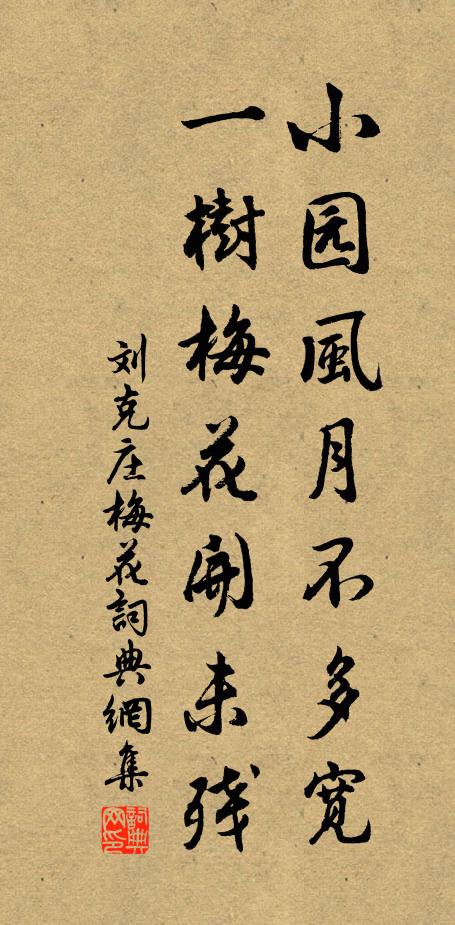 小园風月不多寬
一樹梅花開未残
刘克庄梅花詞典網集
詞典网印